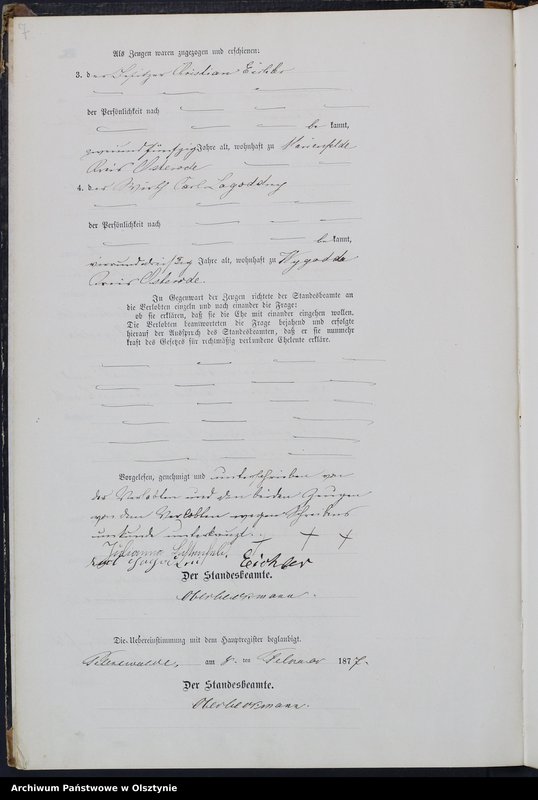 7
Als Zeugen waren zugezogen und erschienen:
3. der Besitzer Christian Eichler
der Persönlichkeit nach
be kannt,
zweiundfünfzig Jahre alt, wohnhaft zu Marienfelde
Kreis Osterode
4. der Wirth Carl
der Persönlichkeit nach
be kannt,
vierunddreißig Jahre alt, wohnhaft zu Wygodda
Kreis Osterode.
In Gegenwart der Zeugen richtete der Standesbeamte an
die Verlobten einzeln und nach einander die Frage:
ob sie erklären, daß sie die Ehe mit einander eingehen wollen.
Die Verlobten beantworteten die Frage bejahend und erfolgte
hierauf der Ausspruch des Standesbeamten, daß er sie nunmehr
kraft des Gesetzes für rechtmäßig verbundene Eheleute erkläre.
Vorgelesen, genehmigt und unterschrieben von
der Verlobten und den beiden Zeugen
von dem Verlobten wegen Schreibens
unkunde unterkreuzt. + + +
Johanna
Eichler
Der Standesbeamte.
Die Uebereinstimmung mit dem Hauptregister beglaubigt.
am 8. ten Februar 1877.
Der Standesbeamte.
Archiwum Państwowe w Olsztynie